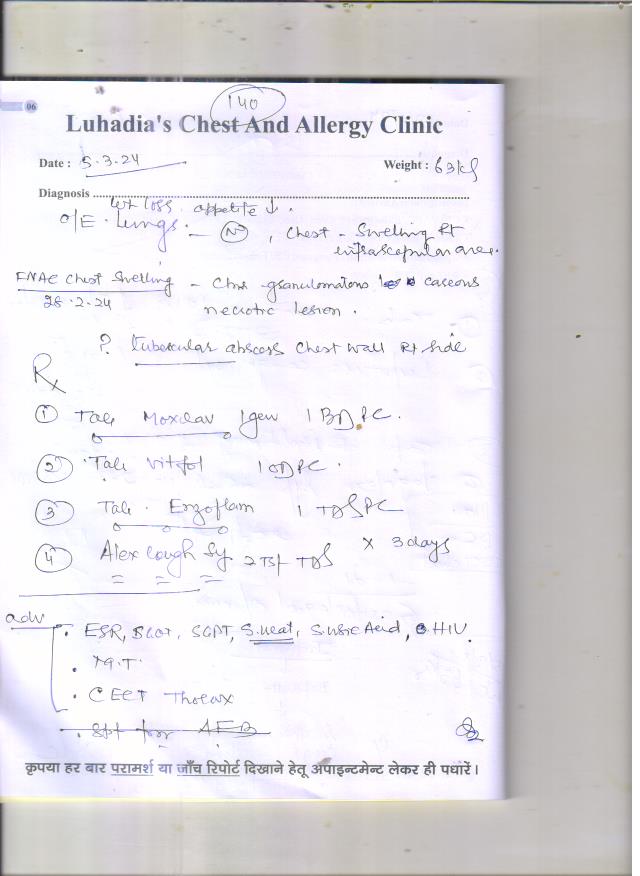 06
140
Luhadia's Chest And Allergy Clinic
Date : 5.3.24 Weight : 63kg
Diagnosis
wt loss. appetite ↓.
O/E. Lungs. – (N), Chest – Swelling Rt
infrascapular area.
FNAC Chest Swelling – Chr. granulomatous caseous
28.2.24 necrotic lesion.
? tubercular abscess chest wall Rt side
Rx
① Tab Moxclav 1gm 1 BD PC.
② Tab Vitfol 1 OD PC.
③ Tab. Enzoflam 1 TDS PC
④ Alex cough Sy 2 Tsf TDS x 3 days
adv
. ESR, SGOT, SGPT, S.creat, S.Uric Acid, HIV.
. M.T.
. CECT Thorax
. Spt for AFB
कृपया हर बार परामर्श या जाँच रिपोर्ट दिखाने हेतू अपाइन्टमेन्ट लेकर ही पधारें।